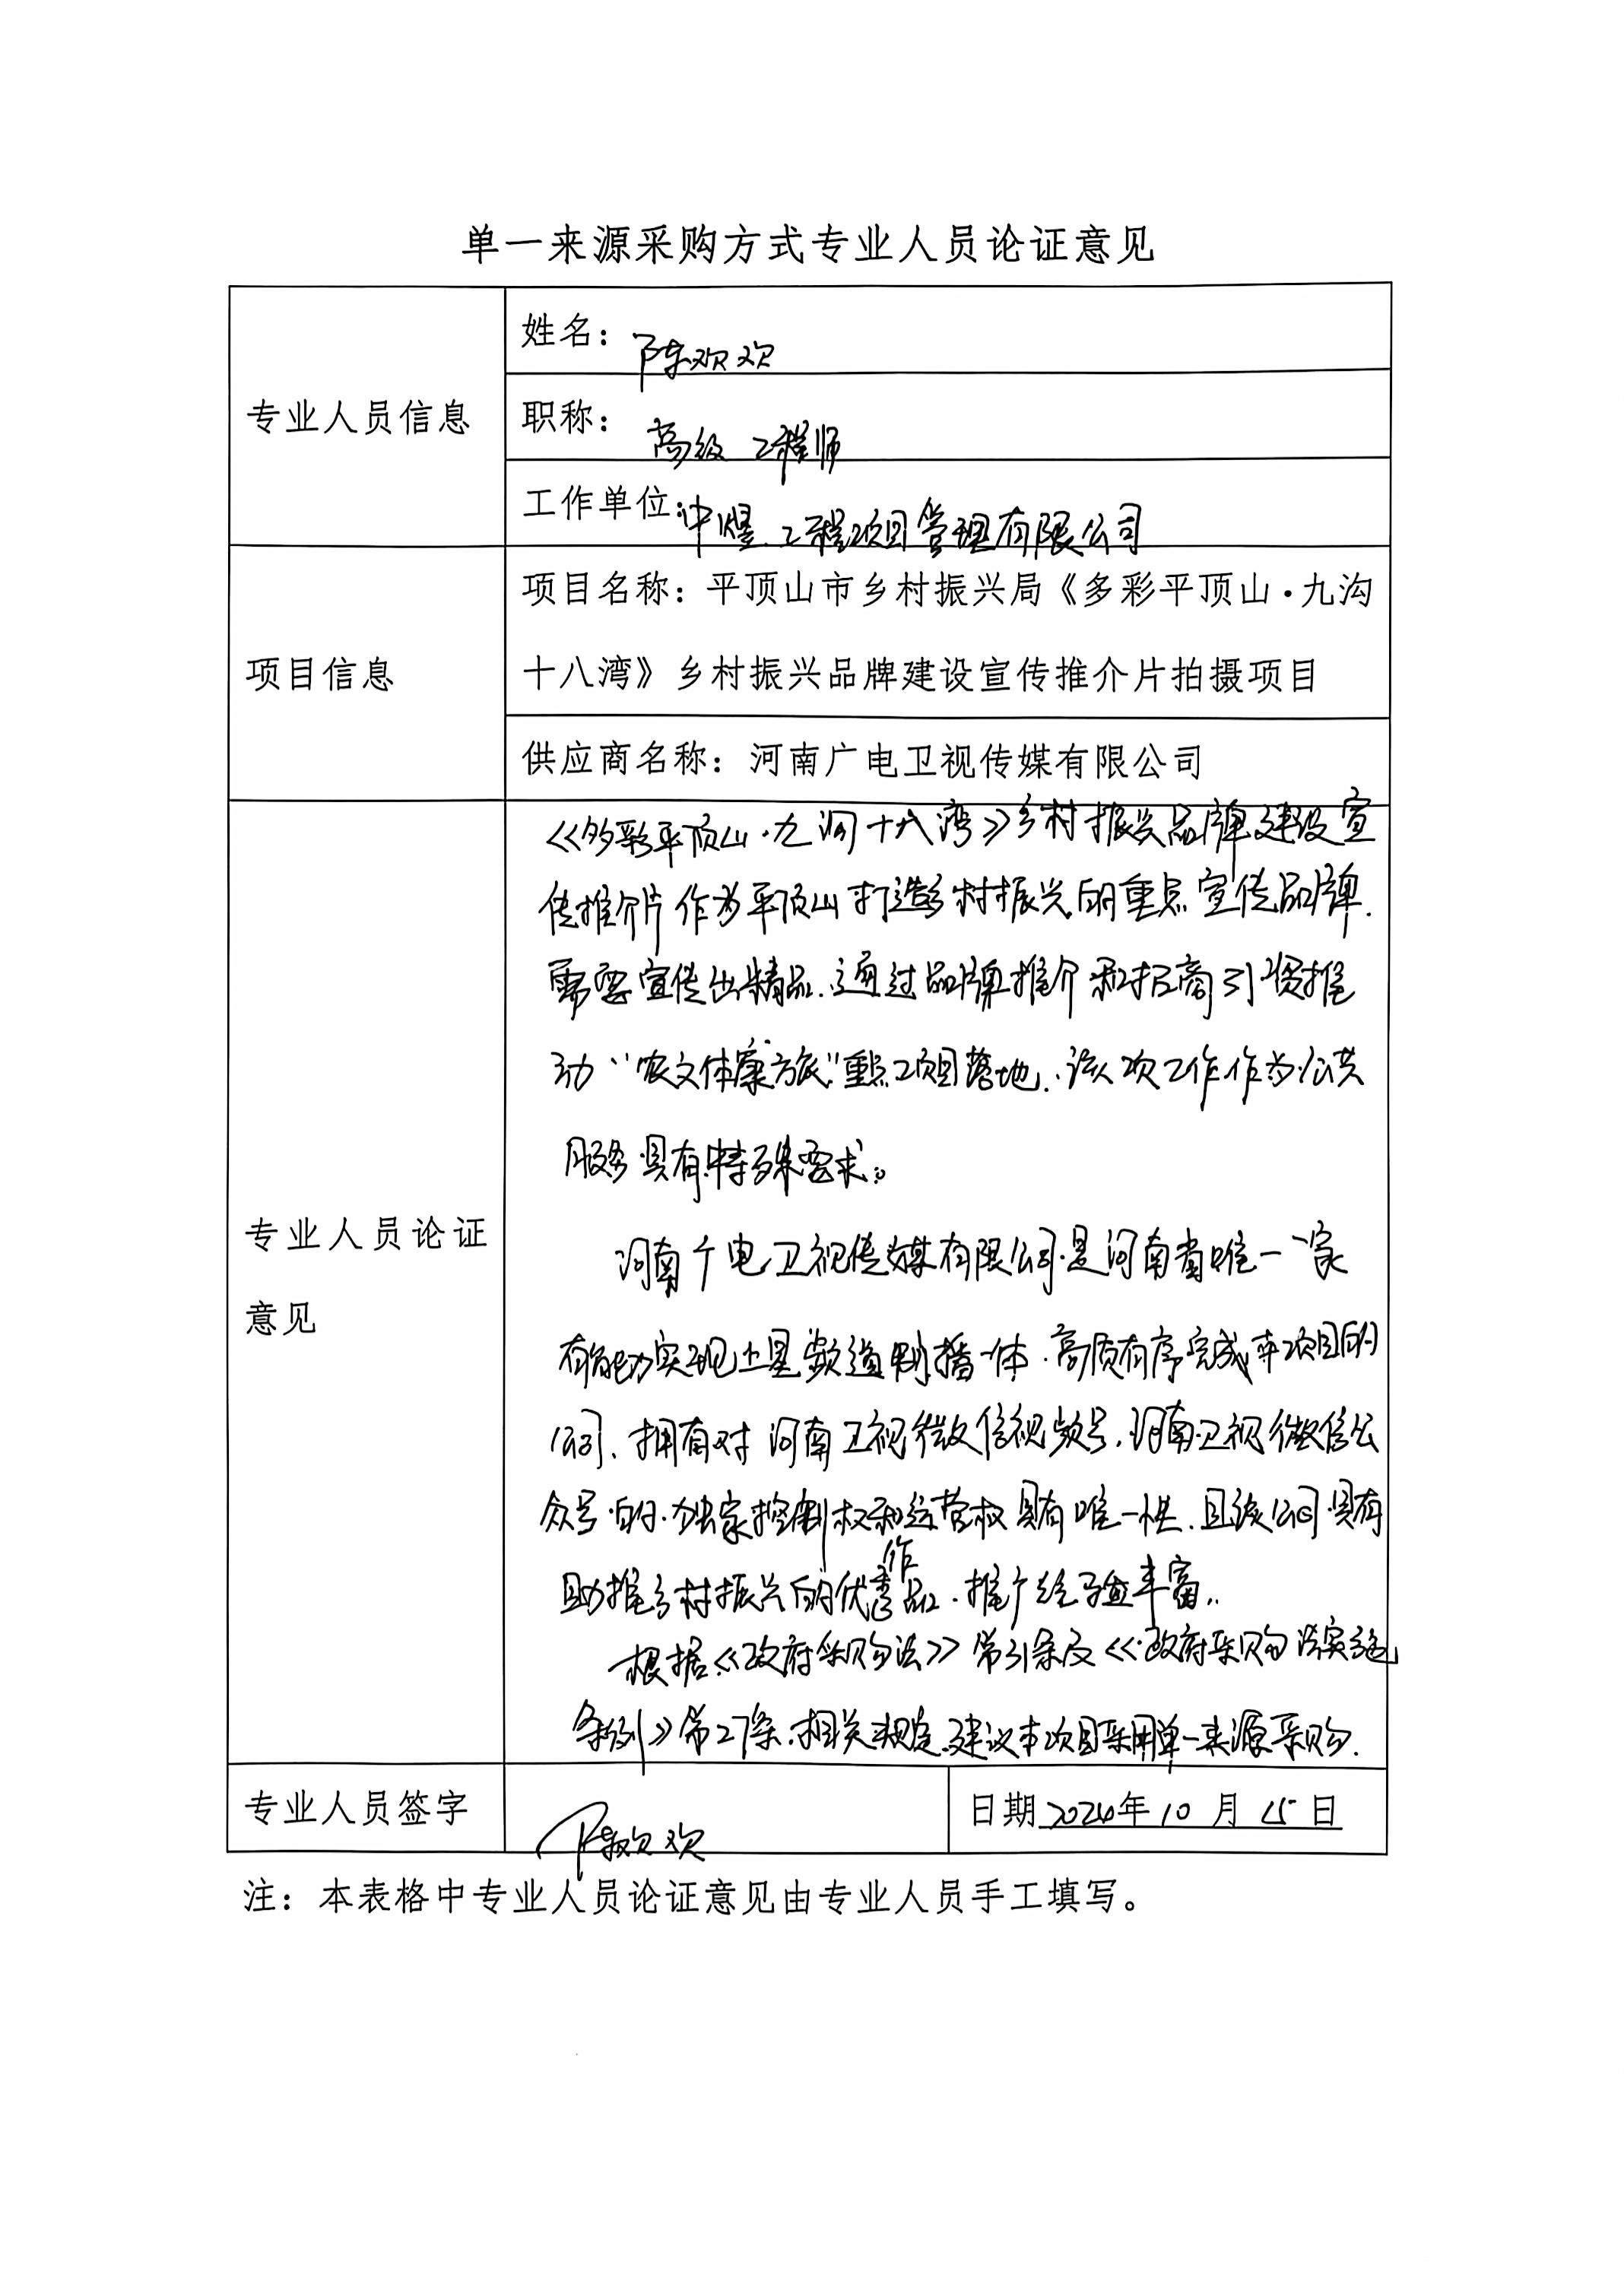 单一来源采购方式专业人员论证意见
专业人员信息
姓名：陈欢欢
职称：高级工程师
工作单位：中煜工程项目管理有限公司
项目信息
项目名称：平顶山市乡村振兴局《多彩平顶山·九沟
十八湾》乡村振兴品牌建设宣传推介片拍摄项目
供应商名称：河南广电卫视传媒有限公司
专业人员论证
意见
《多彩平顶山·九沟十八湾》乡村振兴品牌建设宣
传推介片作为平顶山打造乡村振兴的重点宣传品牌，
需要宣传出精品，通过品牌推介和招商引资推
动“农文体康旅”重点项目落地，该次工作作为公共
服务具有特殊要求。
河南广电卫视传媒有限公司是河南省唯一一家
有能力实现上星频道制播一体，高质有序完成本项目的
公司、拥有对河南卫视微信视频号，河南卫视微信公
众号的独家控制权和运营权具有唯一性，且该公司具有
助推乡村振兴的优秀作品，推广经验丰富。
根据《政府采购法》第31条及《政府采购法实施
条例》第27条相关规定，建议本项目采用单一来源采购．
专业人员签字
陈欢欢
日期2024年10月15日
注：本表格中专业人员论证意见由专业人员手工填写。